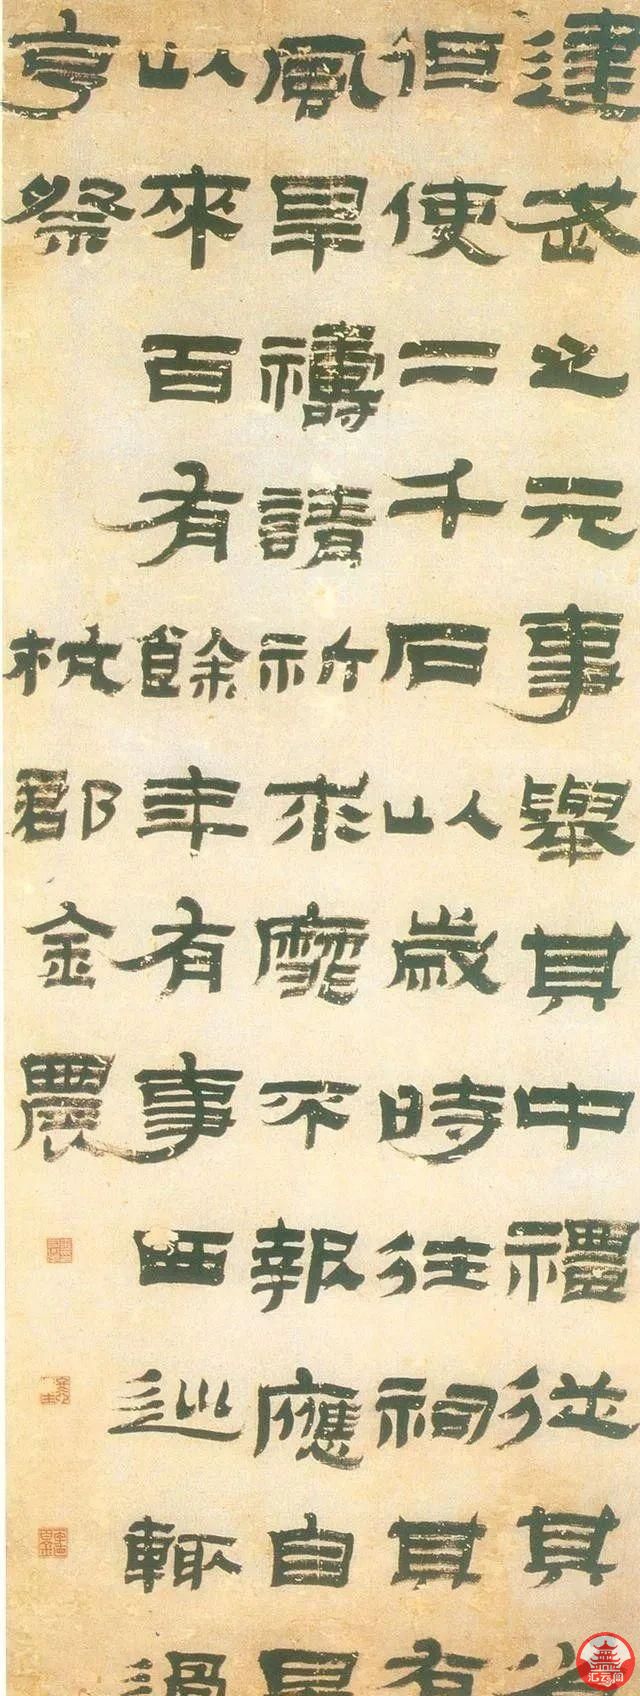 建武之元事舉其中禮從其省
但使二千石以歲時往祠其有
風旱禱請祈求靡不報應自是
以來百有餘年有事西巡輒過
亨祭
杭郡金農
汇云阁